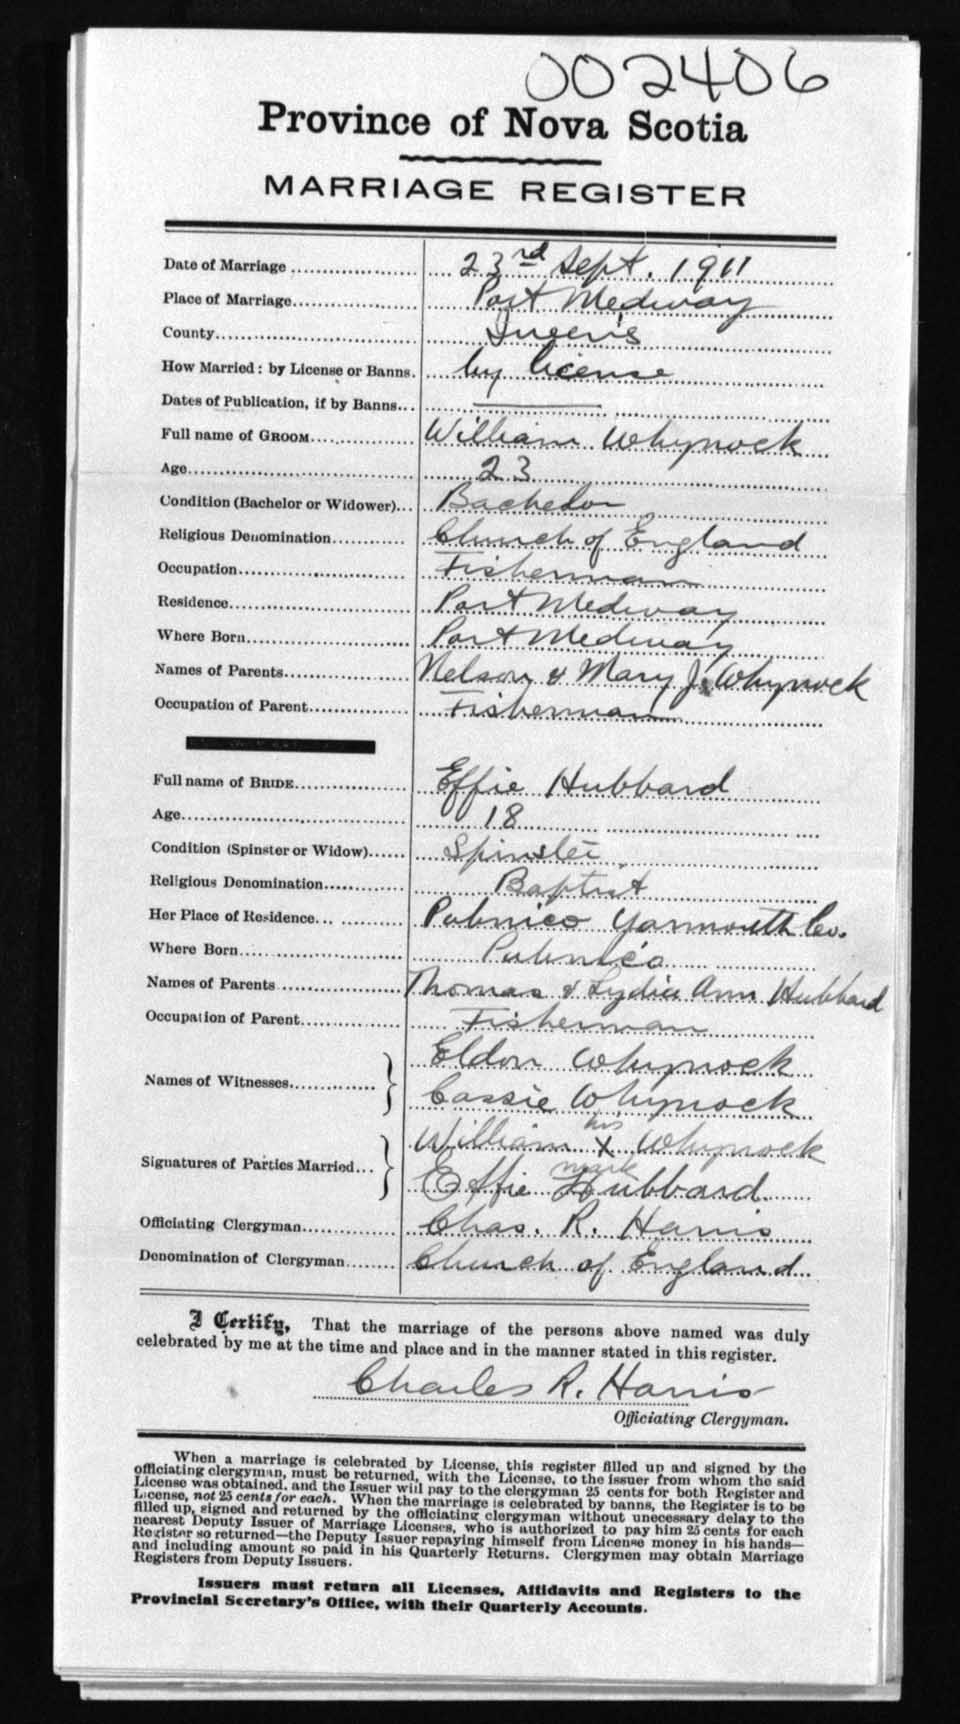 002406
Province of Nova Scotia
MARRIAGE REGISTER
Date of Marriage 23rd Sept. 1911
Place of Marriage Port Medway
County Queen's
How Married: by License or Banns. by license
Dates of Publication, if by Banns
Full name of GROOM William Whynock
Age 23
Condition (Bachelor or Widower) Bachelor
Religious Denomination Church of England
Occupation Fisherman
Residence Port Medway
Where Born Port Medway
Names of Parents Nelson & Mary J. Whynock
Occupation of Parent Fisherman
Full name of BRIDE Effie Hubbard
Age 18
Condition (Spinster or Widow) Spinster
Religious Denomination Baptist
Her Place of Residence Pubnico Yarmouth Co.
Where Born Pubnico
Names of Parents Thomas & Lydia Ann Hubbard
Occupation of Parent Fisherman
Names of Witnesses Eldon Whynock
Cassie Whynock
Signatures of Parties Married William his X mark Whynock
Effie Hubbard
Officiating Clergyman Chas. R. Harris
Denomination of Clergyman Church of England
I Certify, That the marriage of the persons above named was duly
celebrated by me at the time and place and in the manner stated in this register.
Charles R. Harris
Officiating Clergyman.
When a marriage is celebrated by License, this register filled up and signed by the
officiating clergyman, must be returned, with the License, to the issuer from whom the said
License was obtained, and the Issuer will pay to the clergyman 25 cents for both Register and
License, not 25 cents for each. When the marriage is celebrated by banns, the Register is to be
filled up, signed and returned by the officiating clergyman without unecessary delay to the
nearest Deputy Issuer of Marriage Licenses, who is authorized to pay him 25 cents for each
Register so returned—the Deputy Issuer repaying himself from License money in his hands—
and including amount so paid in his Quarterly Returns. Clergymen may obtain Marriage
Registers from Deputy Issuers.
Issuers must return all Licenses, Affidavits and Registers to the
Provincial Secretary's Office, with their Quarterly Accounts.